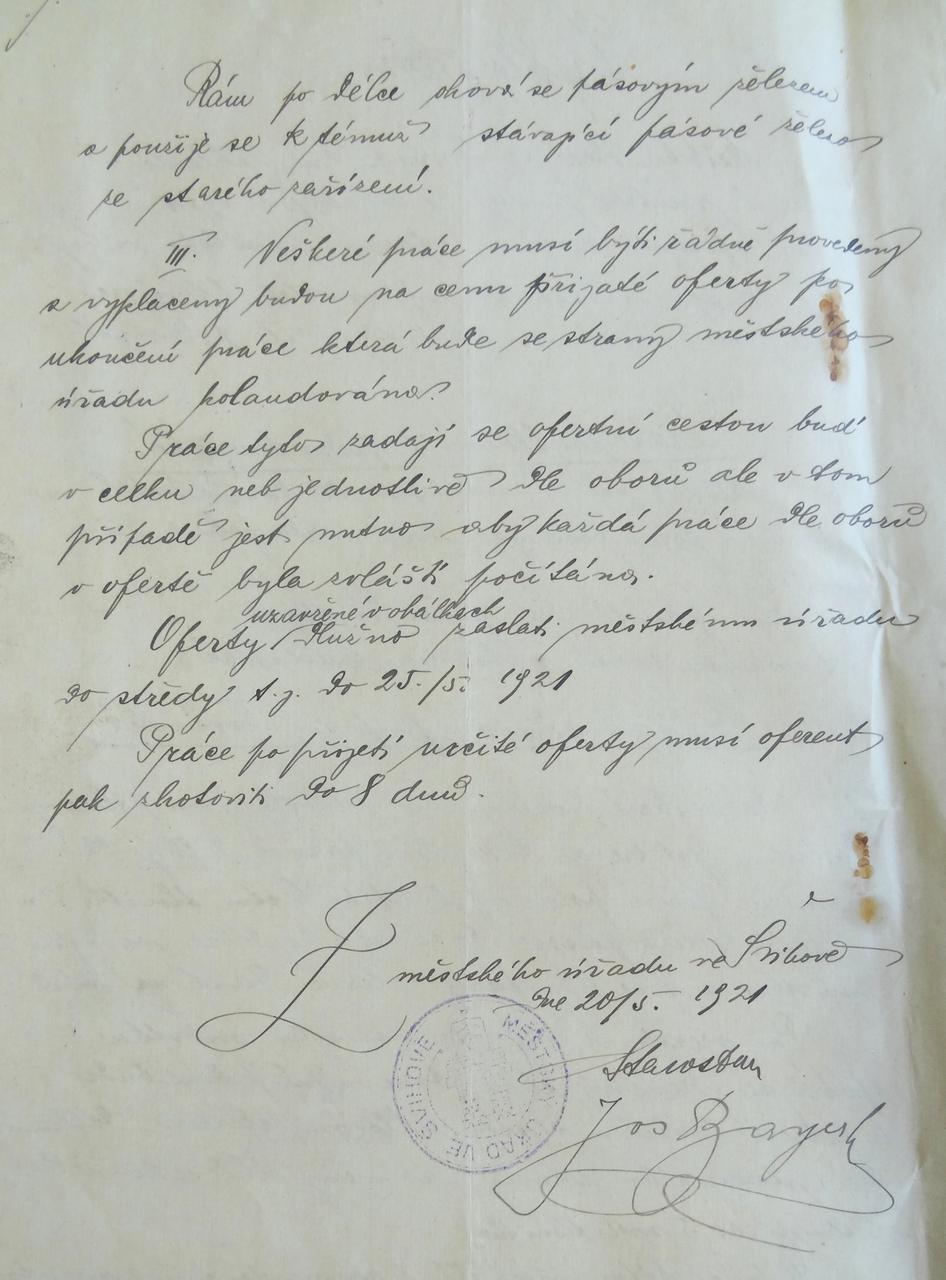 Rám po délce oková se pásovým železem
a použije se k témuž stávající pásové železo
ze starého zařízení.
III. Veškeré práce musí býti řádně provedeny
a vyplaceny budou na cenu přijaté oferty po
ukončení práce která bude se strany městského
úřadu kolaudována.
Práce tyto zadají se ofertní cestou buď
v celku neb jednotlivě dle oborů ale v tom
případě jest nutno aby každá práce dle oborů
v ofertě byla zvlášť počítána.
uzavřené v obálkách
Oferty dlužno zaslati městskému úřadu
do středy t.j. do 25./5. 1921
Práce po přijetí určité oferty musí oferent
pak zhotoviti do 8 dnů.
Z městského úřadu ve Švihově
dne 20/5. 1921
MĚSTSKÝ ÚŘAD VE ŠVIHOVĚ
Starosta
Jos